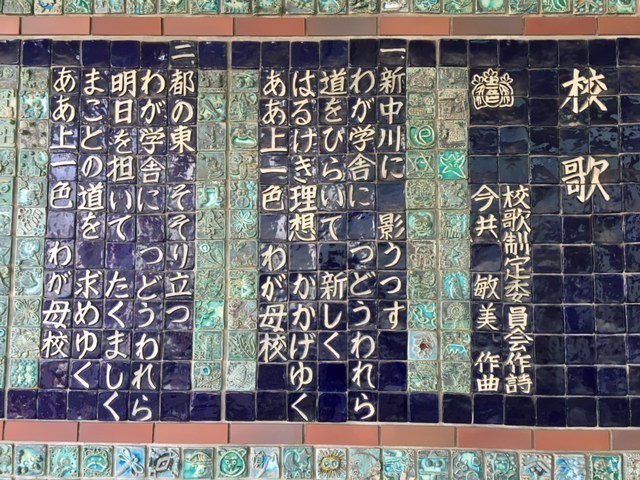 校歌
校歌制定委員会作詩
今井 敏美 作曲
一 新中川に 影うつす
わが学舎に つどうわれら
道をひらいて 新しく
はるけき理想 かかげゆく
ああ上一色 わが母校
二 都の東 そそり立つ
わが学舎に つどうわれら
明日を担いて たくましく
まことの道を 求めゆく
ああ上一色 わが母校